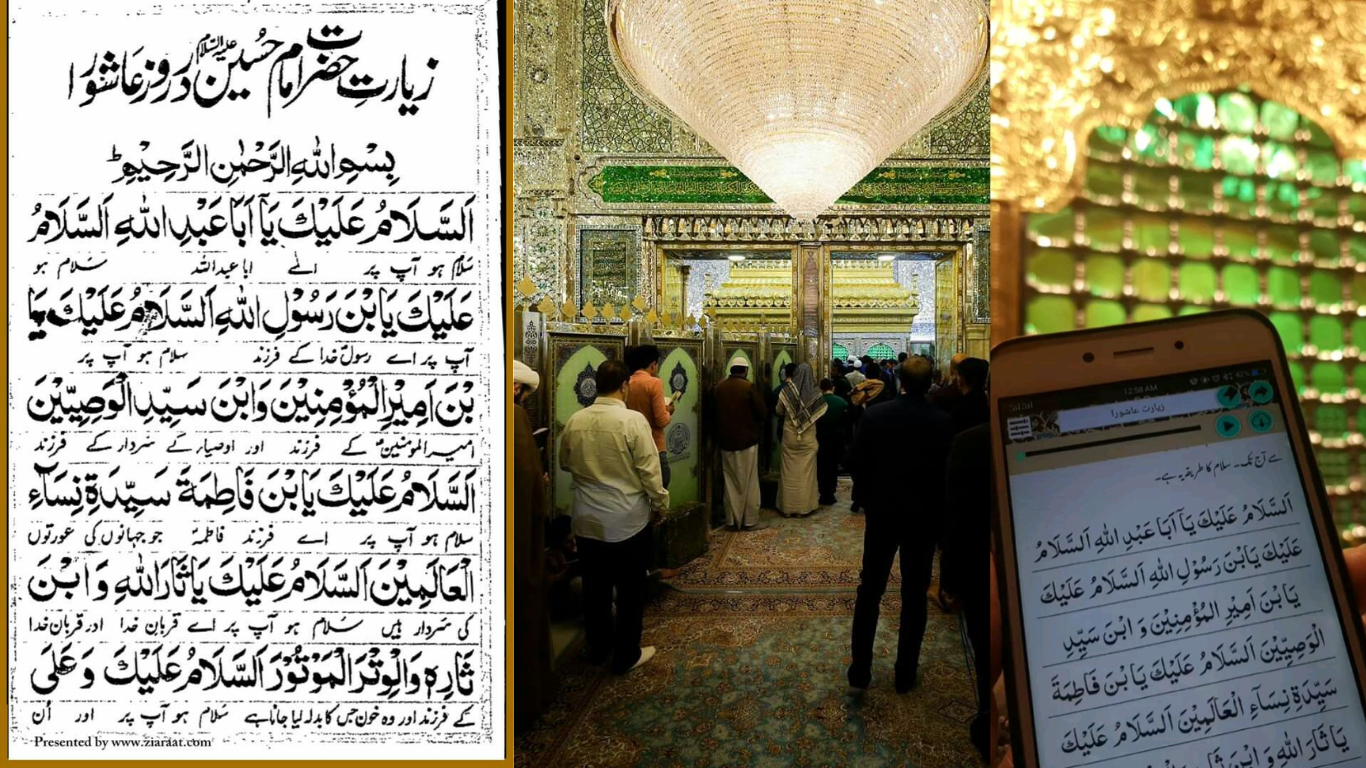 زیارتِ حضرت امام حُسین علیہ السّلام دروزِ عاشورا
بِسْمِ اللهِ الرَّحْمٰنِ الرَّحِيْمِ ط
اَلسَّلَامُ عَلَيْكَ يَآ اَبَا عَبْدِ اللهِ اَلسَّلَامُ
سَلام ہو آپ پر اے ابا عبداللہ سَلام ہو
عَلَيْكَ يَابْنَ رَسُوْلِ اللهِ اَلسَّلَامُ عَلَيْكَ يَا
آپ پر اے رسولِؐ خدا کے فرزند سلام ہو آپ پر
بْنَ اَمِيْرِ الْمُؤْمِنِيْنَ وَابْنَ سَيِّدِ الْوَصِيِّيْنَ
امیر المومنینؑ کے فرزند اور اوصیاء کے سَردار کے فرزند
اَلسَّلَامُ عَلَيْكَ يَابْنَ فَاطِمَةَ سَيِّدَةِ نِسَآءِ
سلام ہو آپ پر اے فرزند فاطمہؑ جو جہانوں کی عورتوں
الْعَالَمِيْنَ اَلسَّلَامُ عَلَيْكَ يَا ثَارَ اللهِ وَابْنَ
کی سَردار ہیں سَلام ہو آپ پر اے قربانِ خدا اور قربانِ خدا
ثَارِهٖ وَالْوِتْرَ الْمَوْتُوْرَ اَلسَّلَامُ عَلَيْكَ وَعَلَى
کے فرزند اور وہ خون جس کا بدلہ لیا جانا ہے سَلام ہو آپ پر اور اُن
Presented by www.ziaraat.com
12:58 AM
زیارت عاشورا
سے آج تک۔ سلام کا طریقہ یہ ہے۔
اَلسَّلَامُ عَلَيْكَ يَآ اَبَا عَبْدِ اللهِ اَلسَّلَامُ
عَلَيْكَ يَابْنَ رَسُوْلِ اللهِ اَلسَّلَامُ عَلَيْكَ
يَا بْنَ اَمِيْرِ الْمُؤْمِنِيْنَ وَ ابْنَ سَيِّدِ
الْوَصِيِّيْنَ اَلسَّلَامُ عَلَيْكَ يَا بْنَ فَاطِمَةَ
سَيِّدَةِ نِسَآءِ الْعَالَمِيْنَ اَلسَّلَامُ عَلَيْكَ
يَا ثَارَ اللهِ وَ ابْنَ